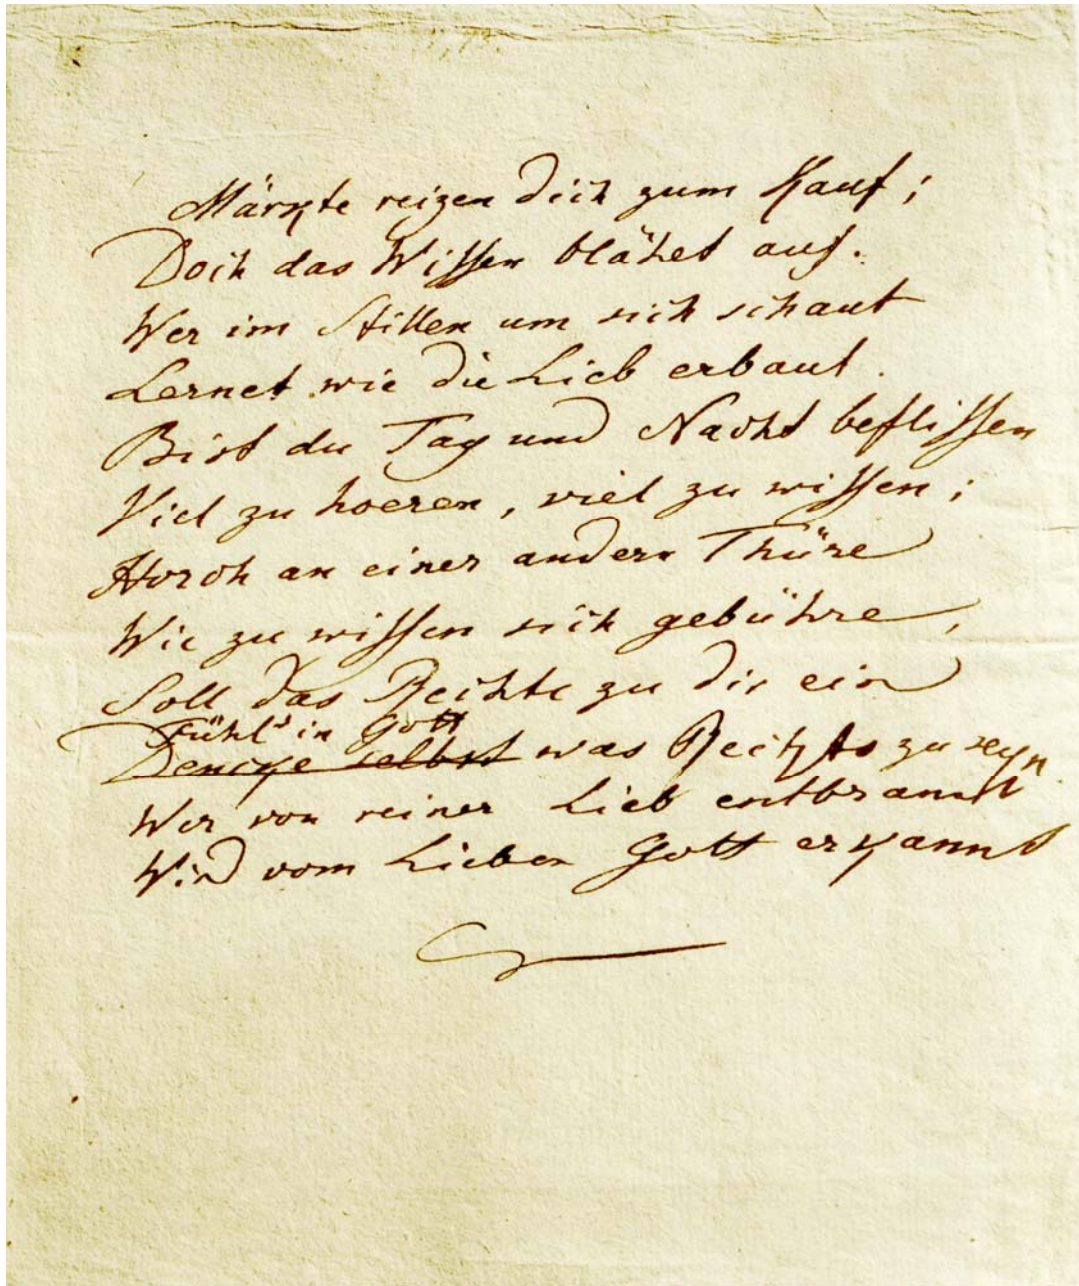 Märkte reizen dich zum Kauf;
Doch das Wissen blähet auf.
Wer im Stillen um sich schaut
Lernet wie die Lieb erbaut.
Bist du Tag und Nacht beflissen
Viel zu hoeren, viel zu wissen;
Horch an einer andern Thüre
Wie zu wissen sich gebühre,
Soll das Rechte zu dir ein
Fühl' in Gott
Dencke selbst was Rechts zu seyn
Wer von reiner Lieb entbrannt
Wird vom Lieben Gott erkannt